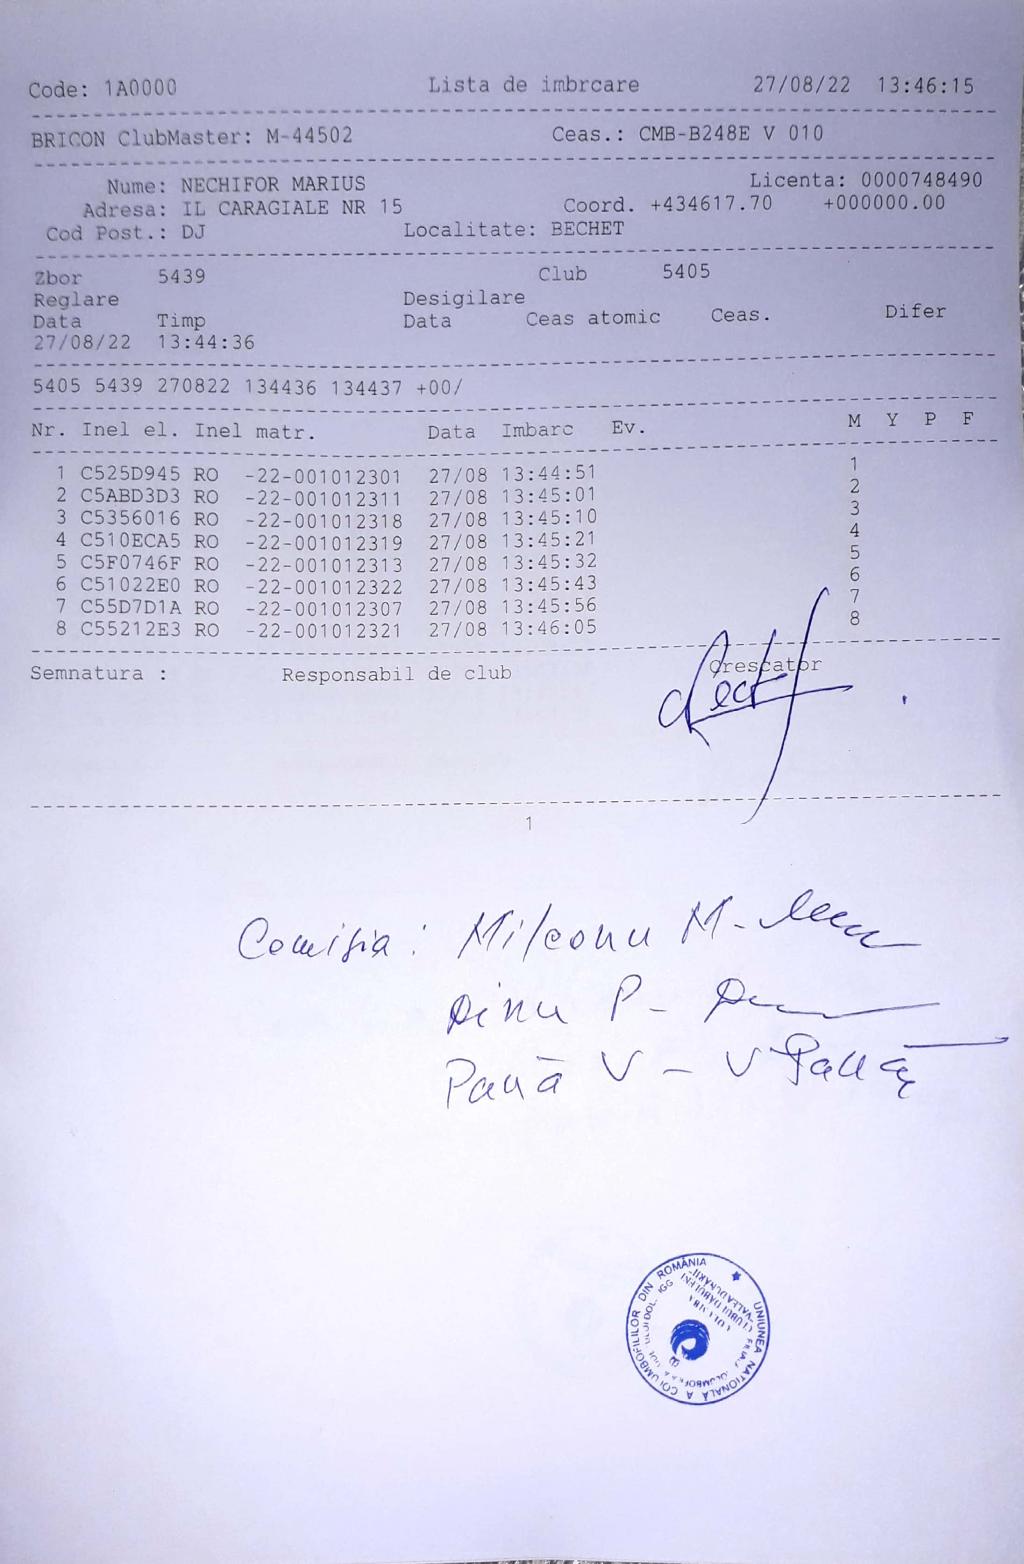 Code: 1A0000 Lista de imbrcare 27/08/22 13:46:15
BRICON ClubMaster: M-44502 Ceas.: CMB-B248E V 010
Nume: NECHIFOR MARIUS Licenta: 0000748490
Adresa: IL CARAGIALE NR 15 Coord. +434617.70 +000000.00
Cod Post.: DJ Localitate: BECHET
Zbor 5439 Club 5405
Reglare Desigilare
Data Timp Data Ceas atomic Ceas. Difer
27/08/22 13:44:36
5405 5439 270822 134436 134437 +00/
Nr. Inel el. Inel matr. Data Imbarc Ev. M Y P F
1 C525D945 RO -22-001012301 27/08 13:44:51 1
2 C5ABD3D3 RO -22-001012311 27/08 13:45:01 2
3 C5356016 RO -22-001012318 27/08 13:45:10 3
4 C510ECA5 RO -22-001012319 27/08 13:45:21 4
5 C5F0746F RO -22-001012313 27/08 13:45:32 5
6 C51022E0 RO -22-001012322 27/08 13:45:43 6
7 C55D7D1A RO -22-001012307 27/08 13:45:56 7
8 C55212E3 RO -22-001012321 27/08 13:46:05 8
Semnatura : Responsabil de club Crescator
1
Comisia: Milconu M-
Dinu P-
Pană V - V Pană
UNIUNEA NATIONALĂ A COLUMBOFILILOR DIN ROMÂNIA